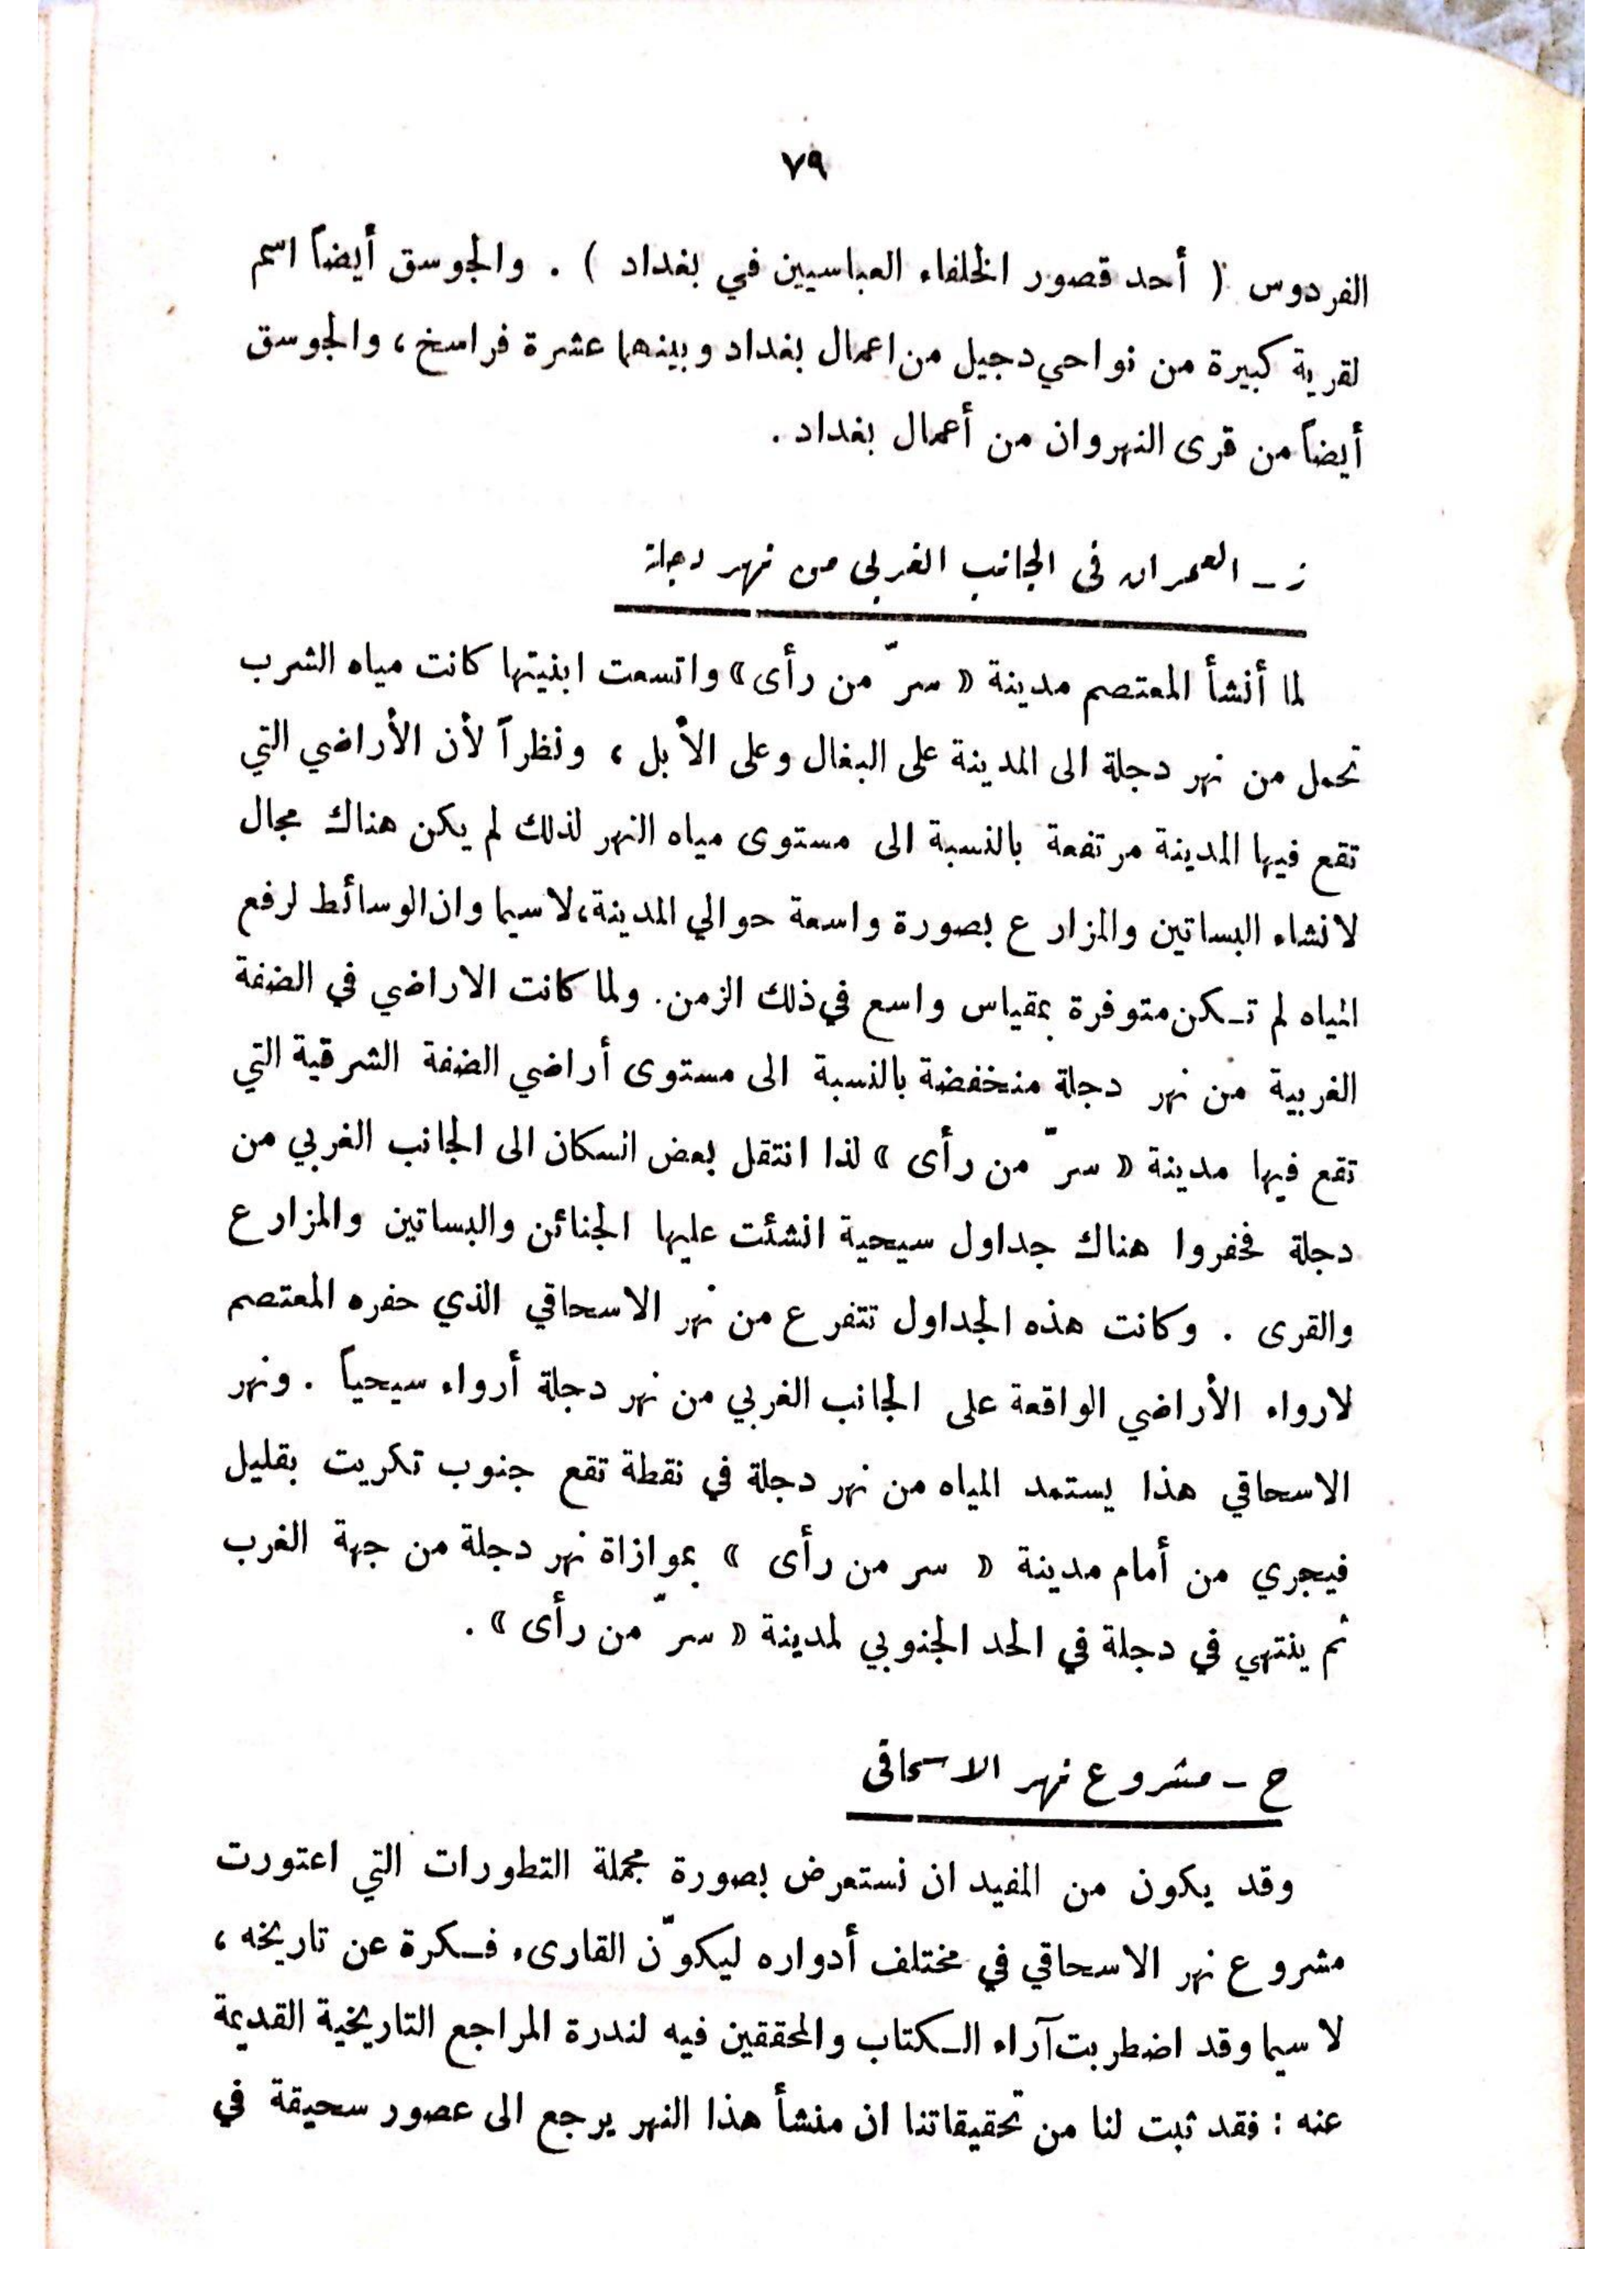 ٧٩
الفردوس ( أحد قصور الخلفاء العباسيين في بغداد ) . والجوسق أيضاً اسم
لقرية كبيرة من نواحي دجيل من اعمال بغداد وبينهما عشرة فراسخ ، والجوسق
أيضاً من قرى النهروان من أعمال بغداد .
ز ــ العمران في الجانب الغربي من نهر دجلة
لما أنشأ المعتصم مدينة « سرّ من رأى » واتسعت ابنيتها كانت مياه الشرب
تحمل من نهر دجلة الى المدينة على البغال وعلى الأبل ، ونظراً لأن الأراضي التي
تقع فيها المدينة مرتفعة بالنسبة الى مستوى مياه النهر لذلك لم يكن هناك مجال
لانشاء البساتين والمزارع بصورة واسعة حوالي المدينة ، لاسيما وان الوسائط لرفع
المياه لم تـكن متوفرة بمقياس واسع في ذلك الزمن . ولما كانت الاراضي في الضفة
الغربية من نهر دجلة منخفضة بالنسبة الى مستوى أراضي الضفة الشرقية التي
تقع فيها مدينة « سرّ من رأى » لذا انتقل بعض السكان الى الجانب الغربي من
دجلة فحفروا هناك جداول سيحية انشئت عليها الجنائن والبساتين والمزارع
والقرى . وكانت هذه الجداول تتفرع من نهر الاسحاقي الذي حفره المعتصم
لارواء الأراضي الواقعة على الجانب الغربي من نهر دجلة أرواء سيحياً . ونهر
الاسحاقي هذا يستمد المياه من نهر دجلة في نقطة تقع جنوب تكريت بقليل
فيجري من أمام مدينة « سر من رأى » بموازاة نهر دجلة من جهة الغرب
ثم ينتهي في دجلة في الحد الجنوبي لمدينة « سرّ من رأى » .
ح ــ مشروع نهر الاسحاقي
وقد يكون من المفيد ان نستعرض بصورة مجملة التطورات التي اعتورت
مشروع نهر الاسحاقي في مختلف أدواره ليكوّن القارىء فـكرة عن تاريخه ،
لا سيما وقد اضطربت آراء الـكتاب والمحققين فيه لندرة المراجع التاريخية القديمة
عنه : فقد ثبت لنا من تحقيقاتنا ان منشأ هذا النهر يرجع الى عصور سحيقة في